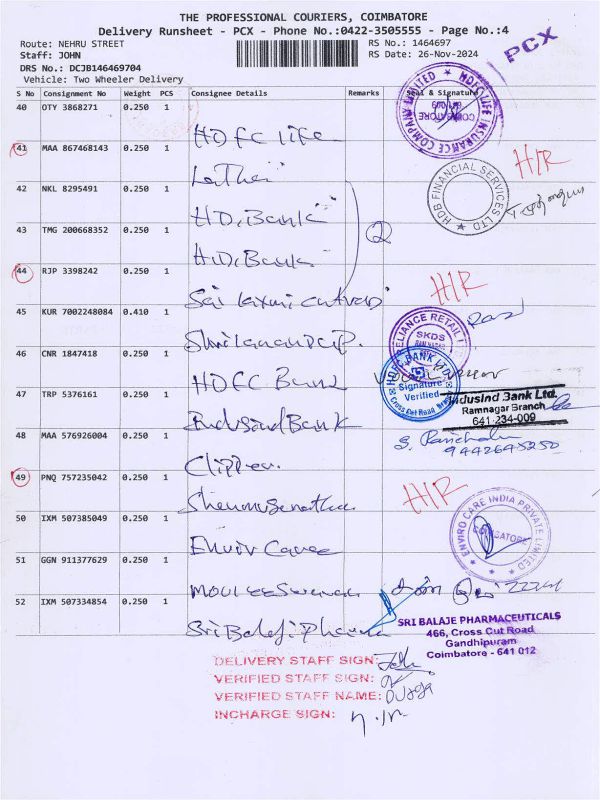 THE PROFESSIONAL COURIERS, COIMBATORE
Delivery Runsheet - PCX - Phone No.:0422-3505555 - Page No.:4
Route: NEHRU STREET RS No.: 1464697
Staff: JOHN RS Date: 26-Nov-2024
DRS No.: DCJB146469704
Vehicle: Two Wheeler Delivery
PCX
S No Consignment No Weight PCS Consignee Details Remarks Seal & Signature
40 OTY 3868271 0.250 1 HDFC Life
HDFC LIFE INSURANCE COMPANY LIMITED
COIMBATORE
41 MAA 867468143 0.250 1
H/R
42 NKL 8295491 0.250 1 HD,Bank
HDB FINANCIAL SERVICES LTD
43 TMG 200668352 0.250 1 HD,Bank
2
44 RJP 3398242 0.250 1 Sri Laxmi
H/R
45 KUR 7002248084 0.410 1
RELIANCE RETAIL LTD
SKDS
RAM NAGAR
46 CNR 1847418 0.250 1 HDFC Bank
HDFC BANK LTD
Signature
Verified
Cross Cut Road Branch
47 TRP 5376161 0.250 1 IndusInd Bank
IndusInd Bank Ltd.
Ramnagar Branch
641 234-009
48 MAA 576926004 0.250 1 Clipper
9442645250
49 PNQ 757235042 0.250 1
H/R
50 IXM 507385049 0.250 1 Enviro Caree
ENVIRO CARE INDIA PRIVATE LIMITED
COIMBATORE
51 GGN 911377629 0.250 1 Mouleeswaran
52 IXM 507334854 0.250 1 Sri Balaji Pharma
SRI BALAJE PHARMACEUTICALS
466, Cross Cut Road
Gandhipuram
Coimbatore - 641 012
DELIVERY STAFF SIGN:
VERIFIED STAFF SIGN:
VERIFIED STAFF NAME:
INCHARGE SIGN: